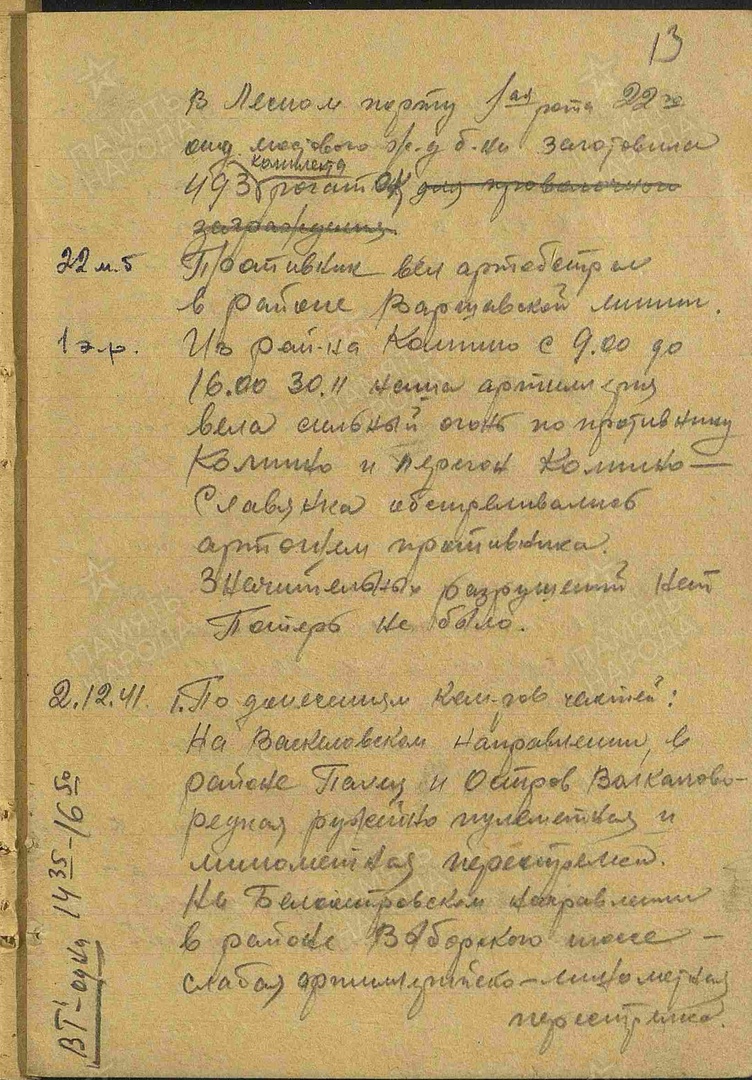 13
В Лесном порту 1ая рота 22го
отд мостового ж.д б-на заготовила
493 комплекта рогаток для проволочного
заграждения
22 м.б Противник вел артобстрел
в районе Варшавской линии.
1 э.р. Из рай-на Колпино с 9.00 до
16.00 30.11 наша артиллерия
вела сильный огонь по противнику
Колпино и перегон Колпино —
Славянка обстреливались
артогнем противника.
Значительных разрушений нет
Потерь не было.
2.12.41. 1. По донесениям ком-ров частей:
На Васкеловском направлении, в
районе и Остров
редкая ружейно пулеметная и
минометная перестрелка.
На Белоостровском направлении
в районе Выборгского шоссе —
слабая артиллерийско-минометная
перестрелка.
ВТ 14 35 - 16 50
ПАМЯТЬ НАРОДА